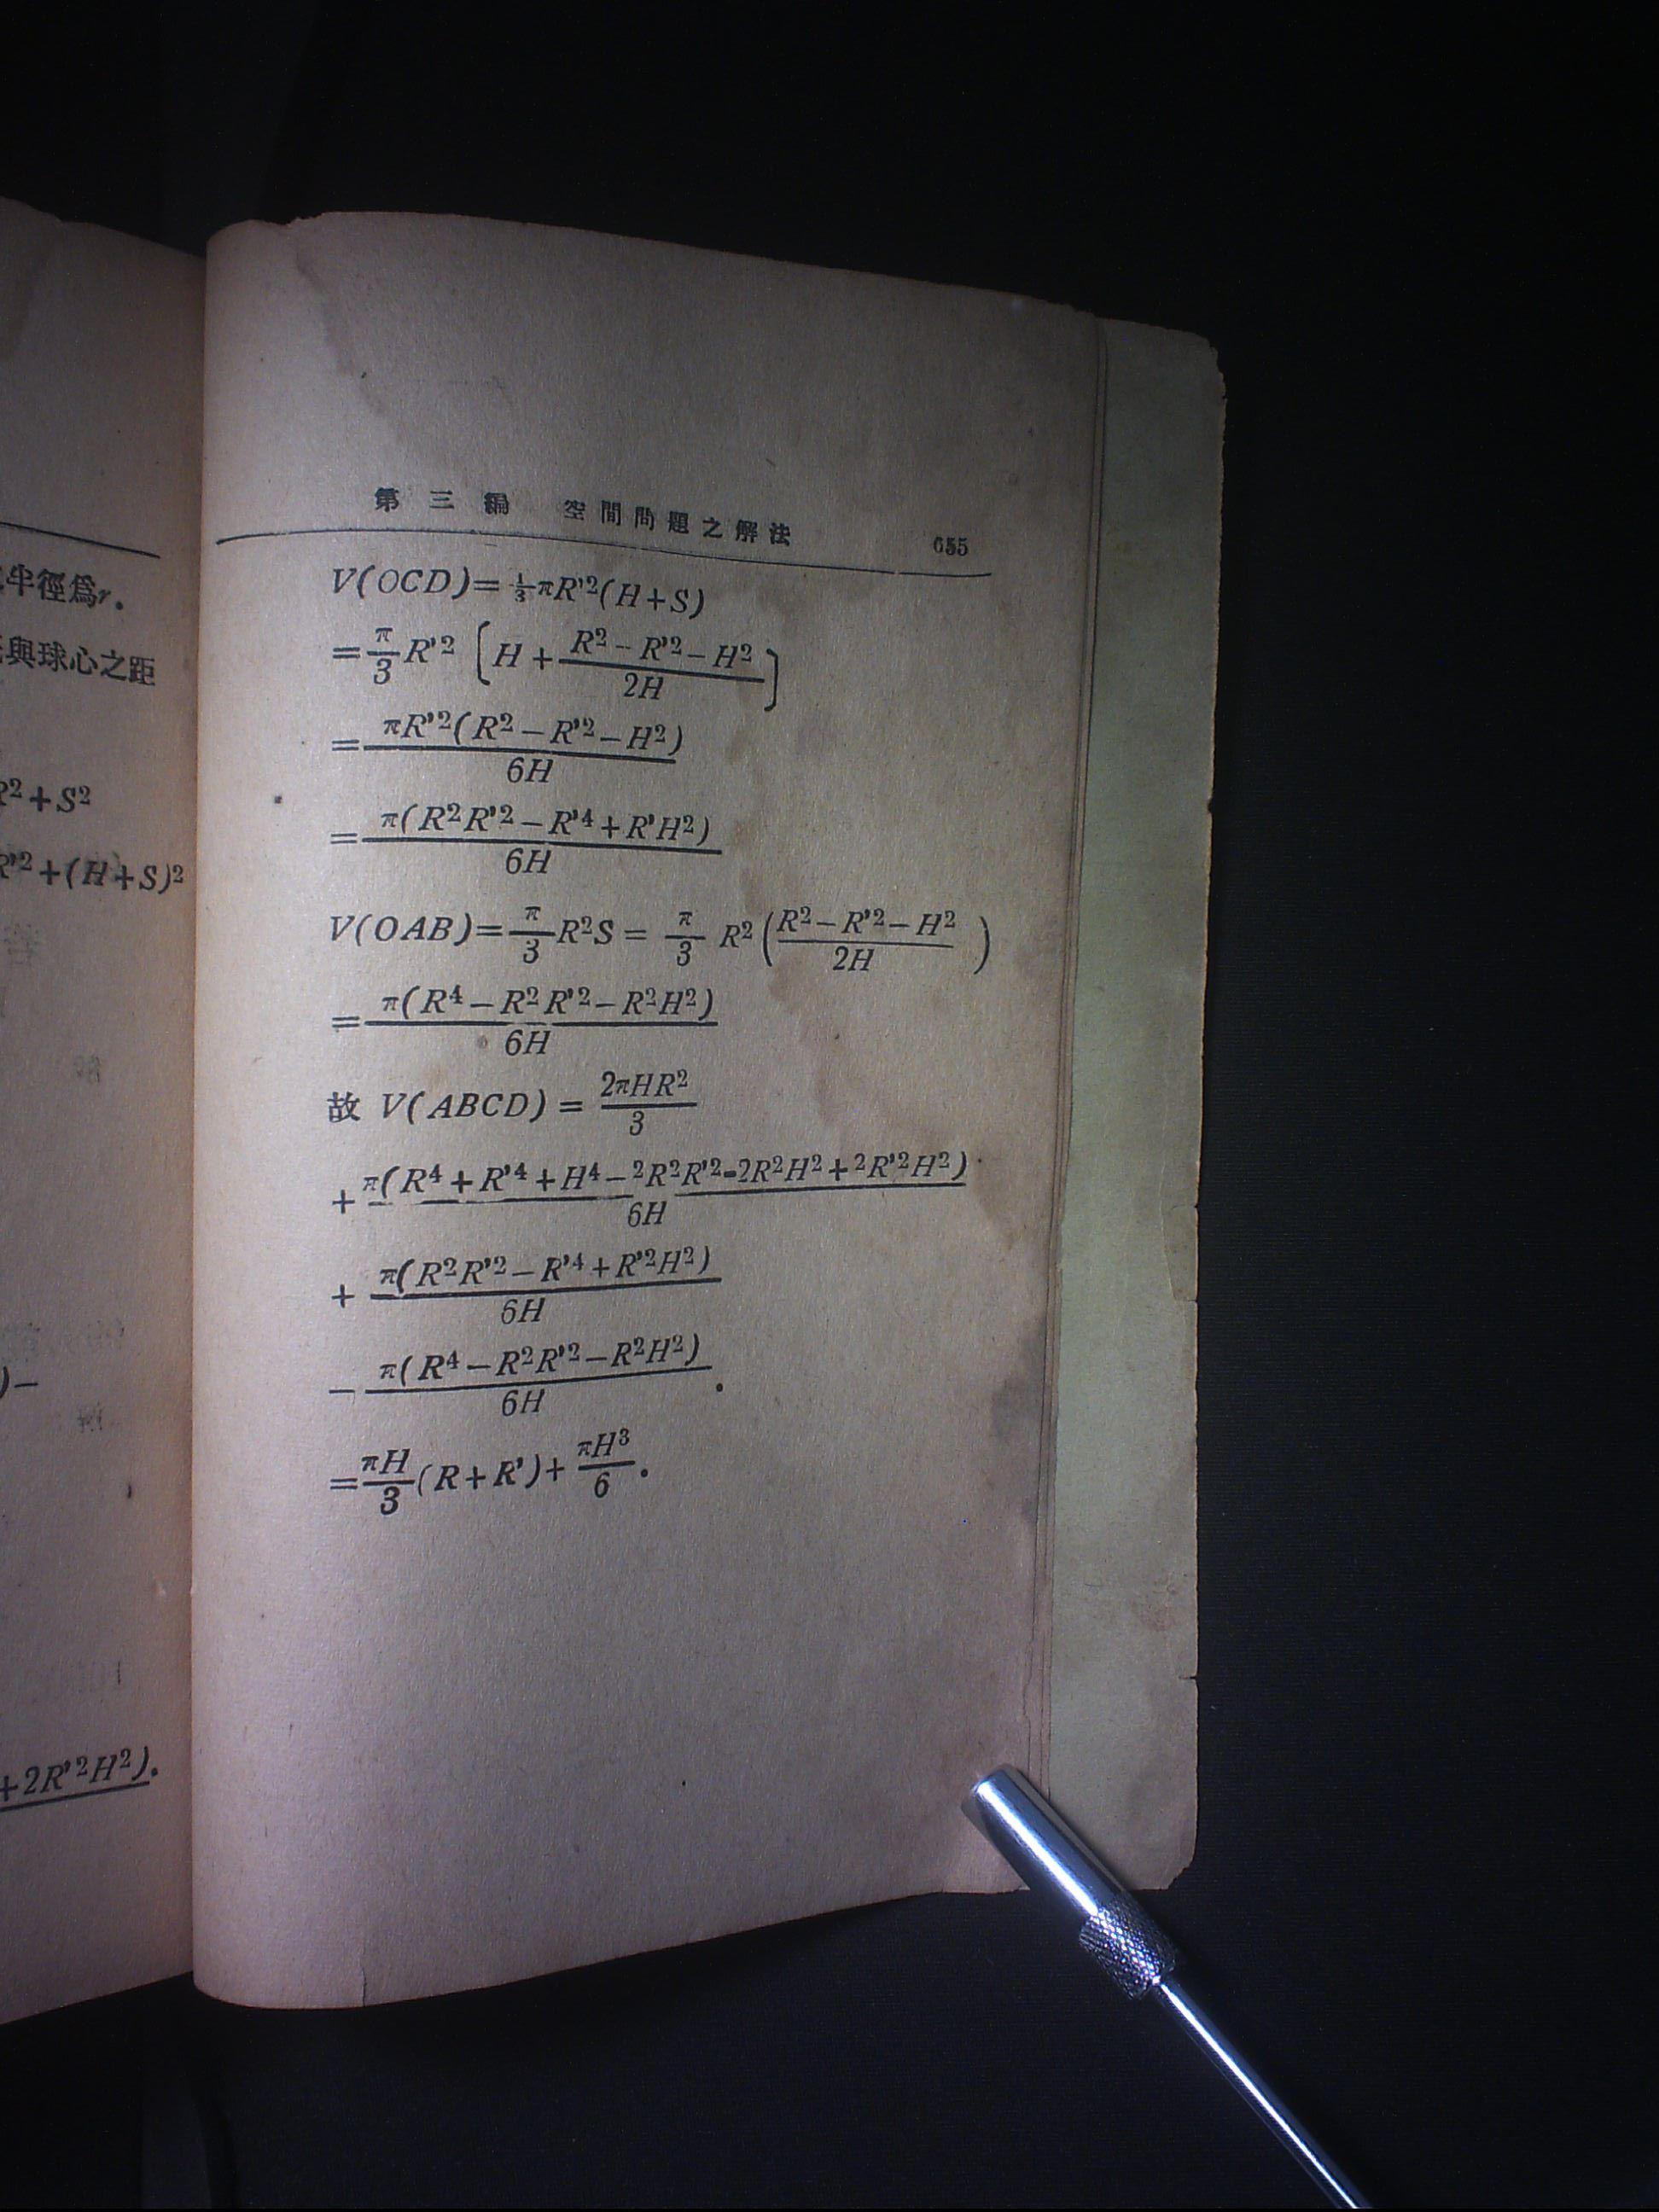 半徑爲r.
與球心之距
R²+S²
R'²+(H+S)²
)−
+2R'²H²).
第三編 空間問題之解法 655
V(OCD)=⅓πR'²(H+S)
=π/3 R'² [H+(R²−R'²−H²)/2H]
=πR'²(R²−R'²−H²)/6H
=π(R²R'²−R'⁴+R'H²)/6H
V(OAB)=π/3 R²S=π/3 R²((R²−R'²−H²)/2H)
=π(R⁴−R²R'²−R²H²)/6H
故 V(ABCD)=2πHR²/3
+π(R⁴+R'⁴+H⁴−2R²R'²-2R²H²+2R'²H²)/6H
+π(R²R'²−R'⁴+R'²H²)/6H
−π(R⁴−R²R'²−R²H²)/6H.
=πH/3(R+R')+πH³/6.